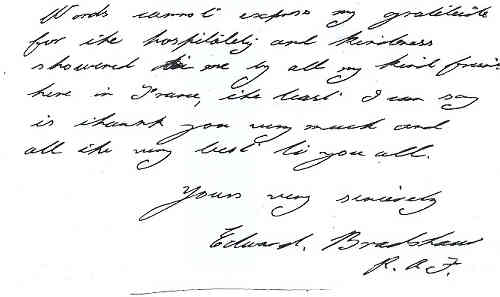 Words cannot express my gratitude
for the hospitality and kindness
showered on me by all my kind friends
here in France, the least I can say
is thank you very much and
all the very best to you all.
Yours very sincerely
Edward. Bradshaw
R.A.F.